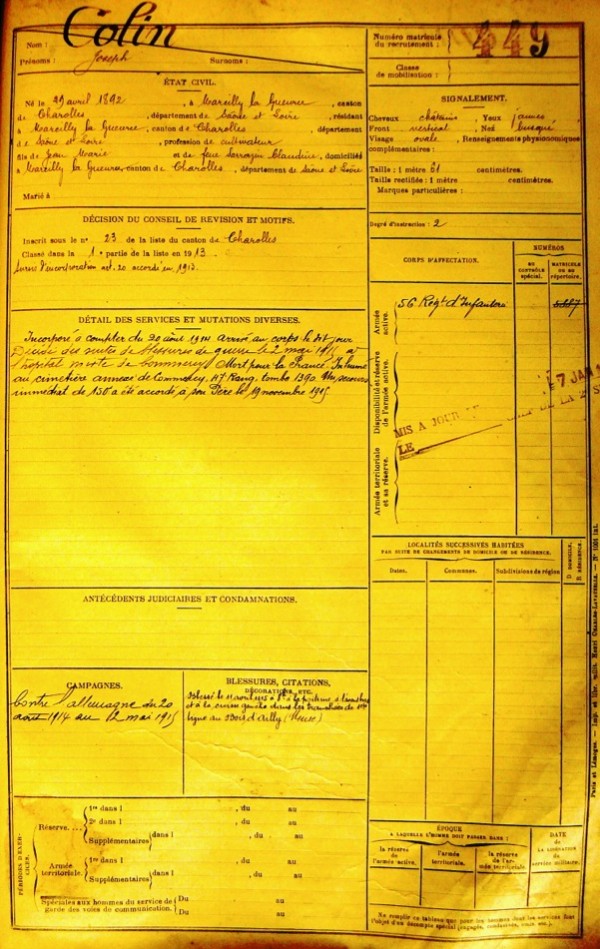 Nom : Colin
Prénoms : Joseph Surnoms :
Numéro matricule
du recrutement : 449
Classe
de mobilisation :
ÉTAT CIVIL.
Né le 29 avril 1892, à Marcilly la Gueurce, canton
de Charolles, département de Saône et Loire, résidant
à Marcilly la Gueurce, canton de Charolles, département
de Saône et Loire, profession de cultivateur
fils de Jean Marie et de feue Sarrazin Claudine, domiciliés
à Marcilly la Gueurce, canton de Charolles, département de Saône et Loire
Marié à
SIGNALEMENT.
Cheveux châtains Yeux jaunes
Front vertical Nez busqué
Visage ovale, Renseignements physionomiques
complémentaires :
Taille : 1 mètre 61 centimètres.
Taille rectifiée : 1 mètre centimètres.
Marques particulières :
DÉCISION DU CONSEIL DE REVISION ET MOTIFS.
Inscrit sous le n° 23 de la liste du canton de Charolles
Classé dans la 1e partie de la liste en 1913.
Sursis d'incorporation art. 20 accordé en 1913.
Degré d'instruction : 2
CORPS D'AFFECTATION.
NUMÉROS
AU CONTRÔLE spécial.
MATRICULE OU AU répertoire.
Armée active.
56 Régt d'Infanterie
Disponibilité et réserve de l'armée active.
MIS A JOUR
LE
7 JAN
DE LA 2
Armée territoriale et sa réserve.
DÉTAIL DES SERVICES ET MUTATIONS DIVERSES.
Incorporé à compter du 20 août 1914 arrivé au corps le dit jour
Décédé des suites de blessures de guerre le 2 mai 1915 à
l'hôpital mixte de Commercy Mort pour la France Inhumé
au cimetière annexe de Commercy. Rang, tombe 1390. Un secours
immédiat de 150f a été accordé à son Père le 19 novembre 1915
LOCALITÉS SUCCESSIVES HABITÉES
PAR SUITE DE CHANGEMENTS DE DOMICILE OU DE RÉSIDENCE.
Dates. Communes. Subdivisions de région D. DOMICILE. R. RÉSIDENCE.
ANTÉCÉDENTS JUDICIAIRES ET CONDAMNATIONS.
CAMPAGNES.
Contre l'allemagne du 20
août 1914 au 12 mai 1915
BLESSURES, CITATIONS,
DÉCORATIONS, ETC.
Blessé le à la poitrine
et à la cuisse gauche dans les tranchées de 1ère
ligne au Bois d'Ailly (Meuse)
PÉRIODES D'EXERCICES.
Réserve.
1re dans l , du au
2e dans l , du au
Supplémentaires dans l , du au
Armée territoriale.
1re dans l , du au
Supplémentaires dans l , du au
Spéciales aux hommes du service de
garde des voies de communication.
Du au
Du au
ÉPOQUE
A LAQUELLE L'HOMME DOIT PASSER DANS :
la réserve de l'armée active.
l'armée territoriale.
la réserve de l'armée territoriale.
DATE
DE LA LIBÉRATION
du service militaire.
Ne remplir ce tableau que pour les hommes dont les services font
l'objet d'un décompte spécial (engagés, condamnés, omis, etc.).
Paris et Limoges. — Imp. et libr. milit. Henri CHARLES-LAVAUZELLE.